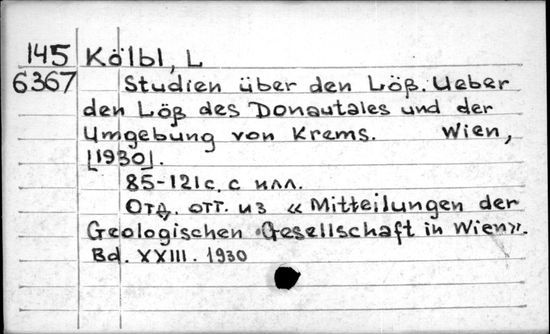 145 Kölbl, L
6367 Studien über den Löß. Ueber
den Löß des Donautales und der
Umgebung von Krems. Wien,
[1930].
85-121 с. с илл.
Отд. отт. из «Mitteilungen der
Geologischen Gesellschaft in Wien».
Bd. XXIII. 1930